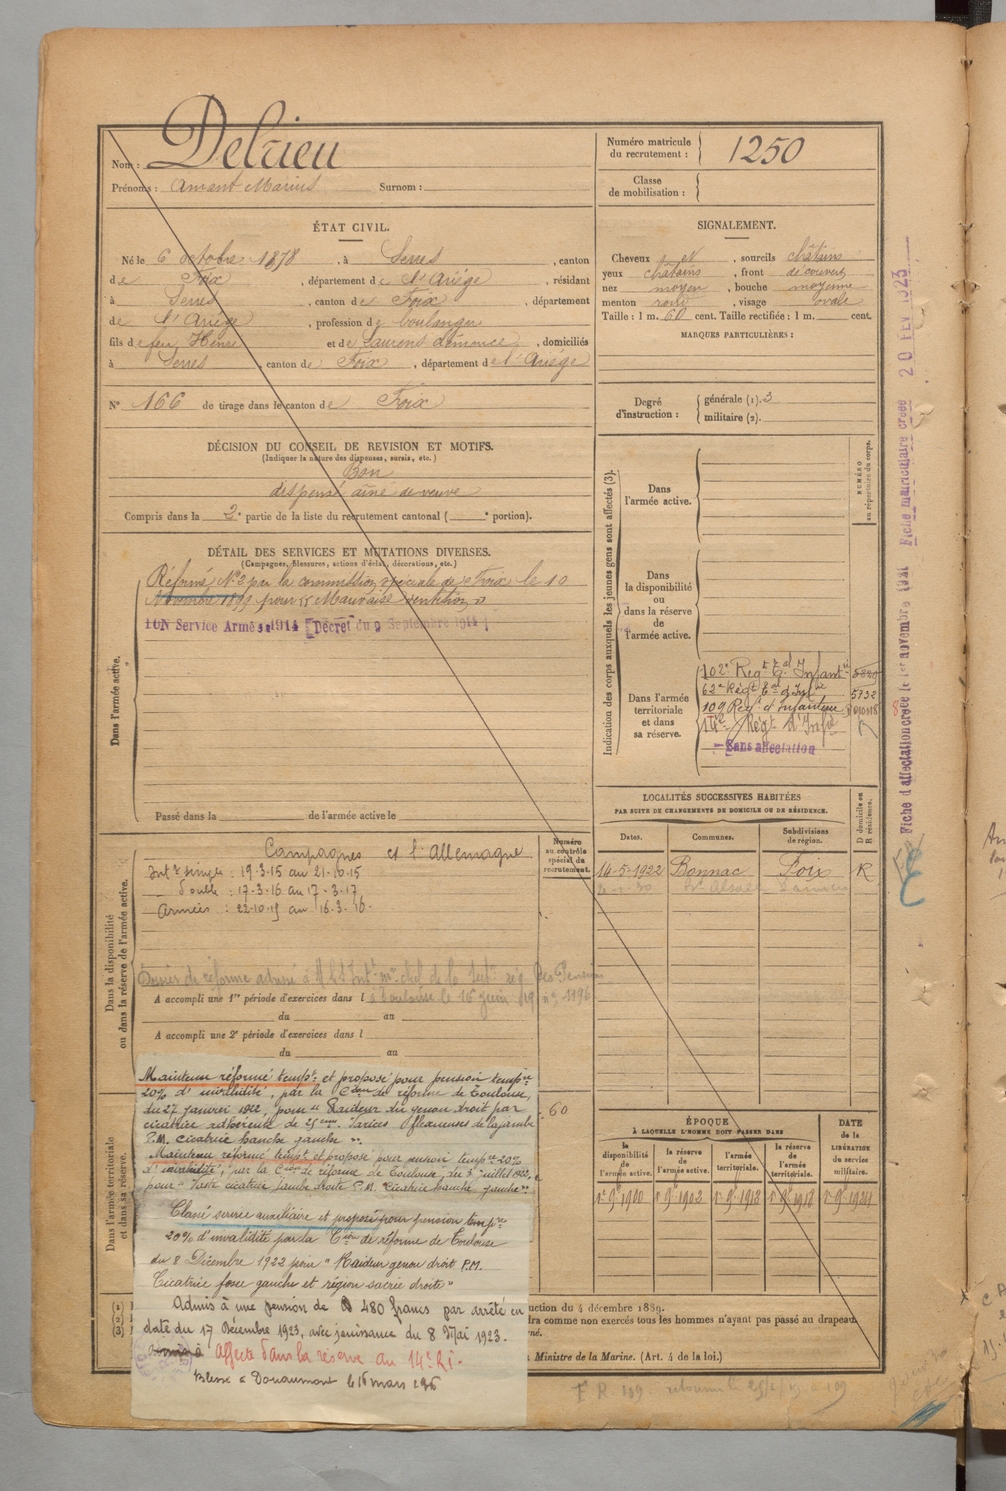 Nom : Delrieu
Prénoms : Amant Marius Surnom :
Numéro matricule
du recrutement : 1250
Classe
de mobilisation :
ÉTAT CIVIL.
Né le 6 octobre 1878, à Serres, canton
de Foix, département de l'Ariège, résidant
à Serres, canton de Foix, département
de l'Ariège, profession de boulanger
fils de feu Henri et de Laurens , domiciliés
à Serres, canton de Foix, département de l'Ariège
N° 166 de tirage dans le canton de Foix
SIGNALEMENT.
Cheveux et, sourcils châtains
yeux châtains, front découvert
nez moyen, bouche moyenne
menton rond, visage ovale
Taille : 1 m. 60 cent. Taille rectifiée : 1 m. cent.
MARQUES PARTICULIÈRES :
Degré
d'instruction :
générale (1). 3
militaire (2).
DÉCISION DU CONSEIL DE REVISION ET MOTIFS.
(Indiquer la nature des dispenses, sursis, etc.)
Bon
dispensé aîné de veuve
Compris dans la 2e partie de la liste du recrutement cantonal ( e portion).
DÉTAIL DES SERVICES ET MUTATIONS DIVERSES.
(Campagnes, blessures, actions d'éclat, décorations, etc.)
Dans l'armée active.
Réformé N° 2 par la commission spéciale de Foix le 10
Novembre 1899 pour "Mauvaise dentition"
Service Armé 1914 [Décret du 9 Septembre 1914]
Passé dans la de l'armée active le
Indication des corps auxquels les jeunes gens sont affectés (3).
NUMÉRO
au répertoire du corps.
Dans
l'armée active.
Dans
la disponibilité
ou
dans la réserve
de
l'armée active.
Dans l'armée
territoriale
et dans
sa réserve.
102e Regt tal d'Infantie
62e Régt tal d'Infie 5732
109 Regt d'Infanterie
14e Régt d'Infie
Sans affectation
LOCALITÉS SUCCESSIVES HABITÉES
PAR SUITE DE CHANGEMENTS DE DOMICILE OU DE RÉSIDENCE.
Dates. Communes. Subdivisions
de région.
D domicile ou
R résidence.
14-5-1922 Bonnac Foix R
Dans la disponibilité
ou dans la réserve de l'armée active.
Numéro
au contrôle
spécial du
recrutement.
Campagnes et l'Allemagne
Intr simple : 19-3-15 au 21-10-15
double : 17-3-16 au 17-3-17
Armées : 22-10-15 au 16-3-16
Dossier de réforme adressé à
A accompli une 1re période d'exercices dans l à Toulouse le 16 juin
du au
A accompli une 2e période d'exercices dans l
du au
Dans l'armée territoriale
et dans sa réserve.
Maintenu réformé tempre et proposé pour pension tempre
20% d'invalidité, par la Cion de réforme de Toulouse,
du 27 Janvier 1922, pour "Raideur du genou droit par
cicatrice adhérente de Varices de la jambe
P.M. cicatrice hanche gauche".
Maintenu réformé tempt et proposé pour pension tempre 20%
d'invalidité, par la Cion de réforme de Toulouse, du 3 juillet 1922,
pour "Vaste cicatrice jambe droite P.M. cicatrice hanche gauche".
Classé service auxiliaire et proposé pour pension tempre
20% d'invalidité par la Cion de réforme de Toulouse
du 8 Décembre 1922 pour "Raideur genou droit P.M.
Cicatrice fosse gauche et région sacrée droite"
Admis à une pension de 480 francs par arrêté en
date du 17 Décembre 1923, avec jouissance du 8 Mai 1923.
Affecté dans la réserve au 14e R.I.
Blessé à Douaumont le 16 mars 1916
60
ÉPOQUE
À LAQUELLE L'HOMME DOIT PASSER DANS
la
disponibilité
de
l'armée active.
la réserve
de
l'armée active.
l'armée
territoriale.
la réserve
de
l'armée
territoriale.
DATE
de la
LIBÉRATION
du service
militaire.
(1)
(2)
(3)
uction du 4 décembre 1889.
dra comme non exercés tous les hommes n'ayant pas passé au drapeau
Ministre de la Marine. (Art. 4 de la loi.)
Fiche d'affectation créée le 1er novembre 1921 Fiche matriculaire créée 20 FEV 1923